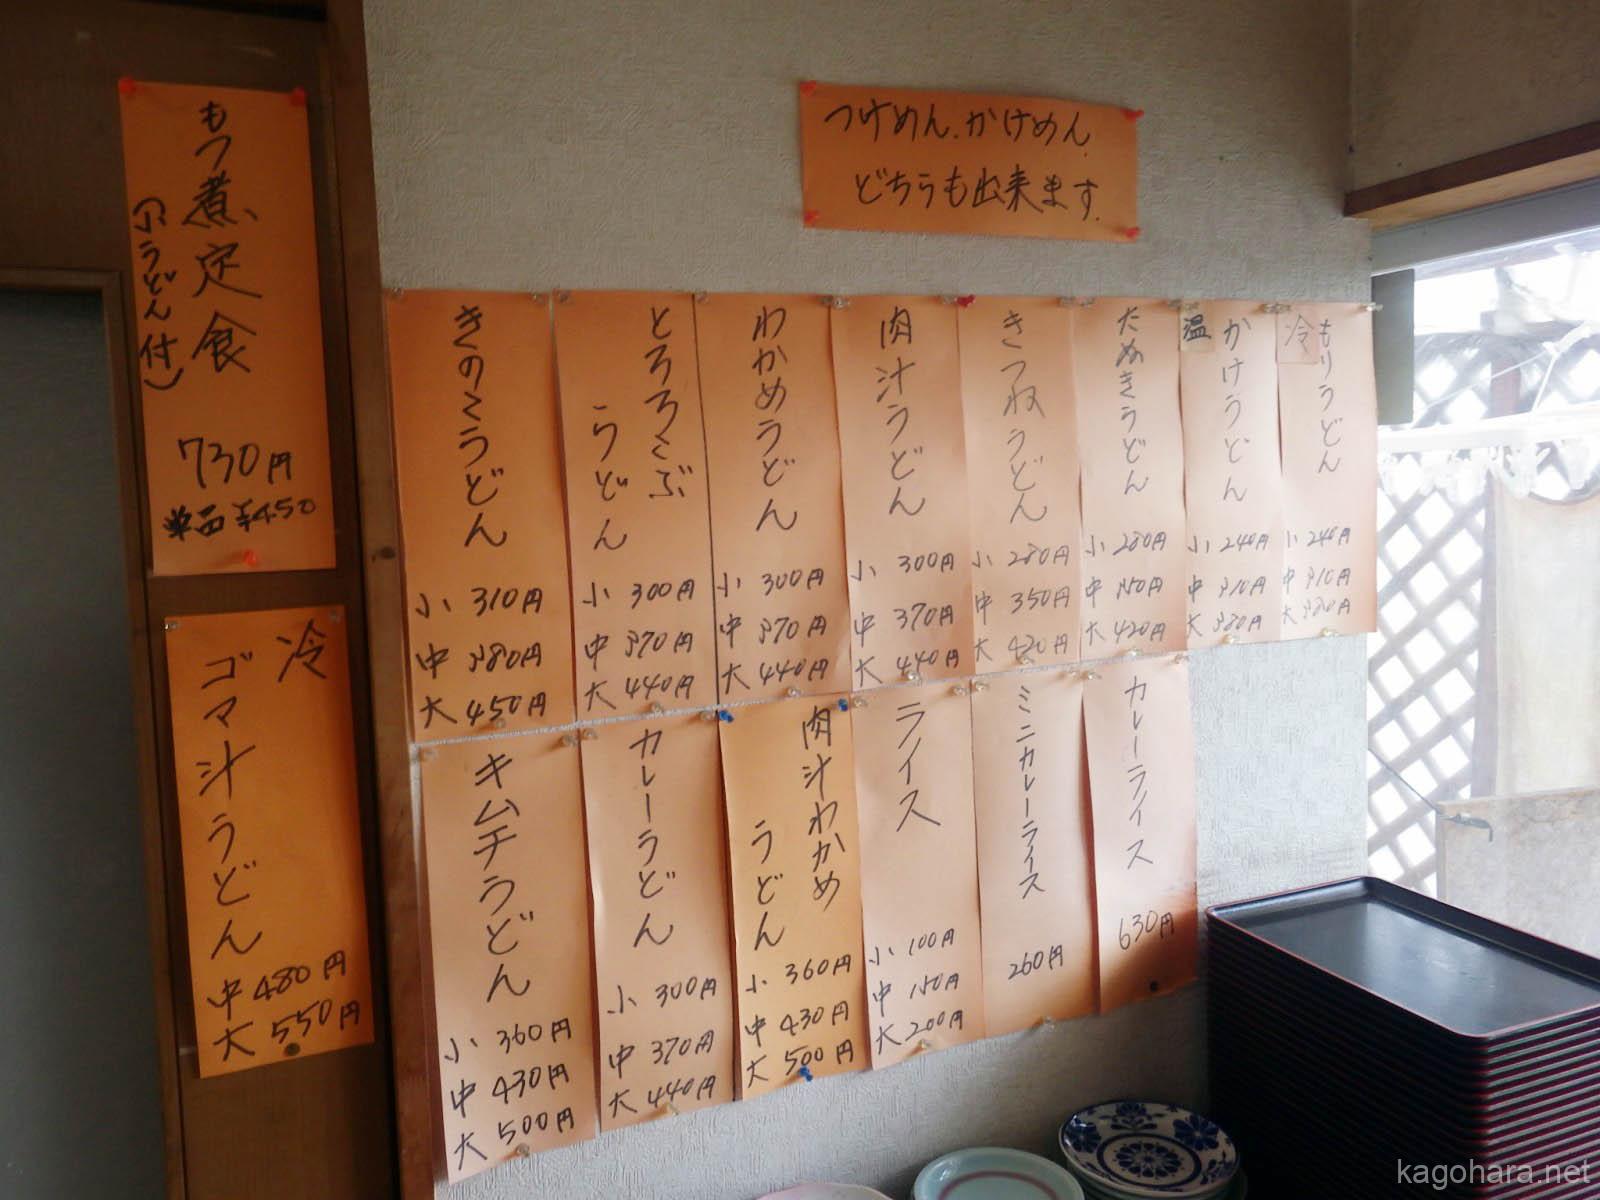 つけめん.かけめん
どちらも出来ます.
冷
もりうどん
小 240円
中 310円
大 380円
温
かけうどん
小 240円
中 310円
大 380円
たぬきうどん
小 280円
中 350円
大 420円
きつねうどん
小 280円
中 350円
大 420円
肉汁うどん
小 300円
中 370円
大 440円
わかめうどん
小 300円
中 370円
大 440円
とろろこぶ
うどん
小 300円
中 370円
大 440円
きのこうどん
小 310円
中 380円
大 450円
カレーライス
630円
ミニカレーライス
260円
ライス
小 100円
中 150円
大 200円
肉汁わかめ
うどん
小 360円
中 430円
大 500円
カレーうどん
小 300円
中 370円
大 440円
キムチうどん
小 360円
中 430円
大 500円
もつ煮定食
(小うどん付)
730円
単品 ¥450
冷
ゴマ汁うどん
中 480円
大 550円
kagohara.net